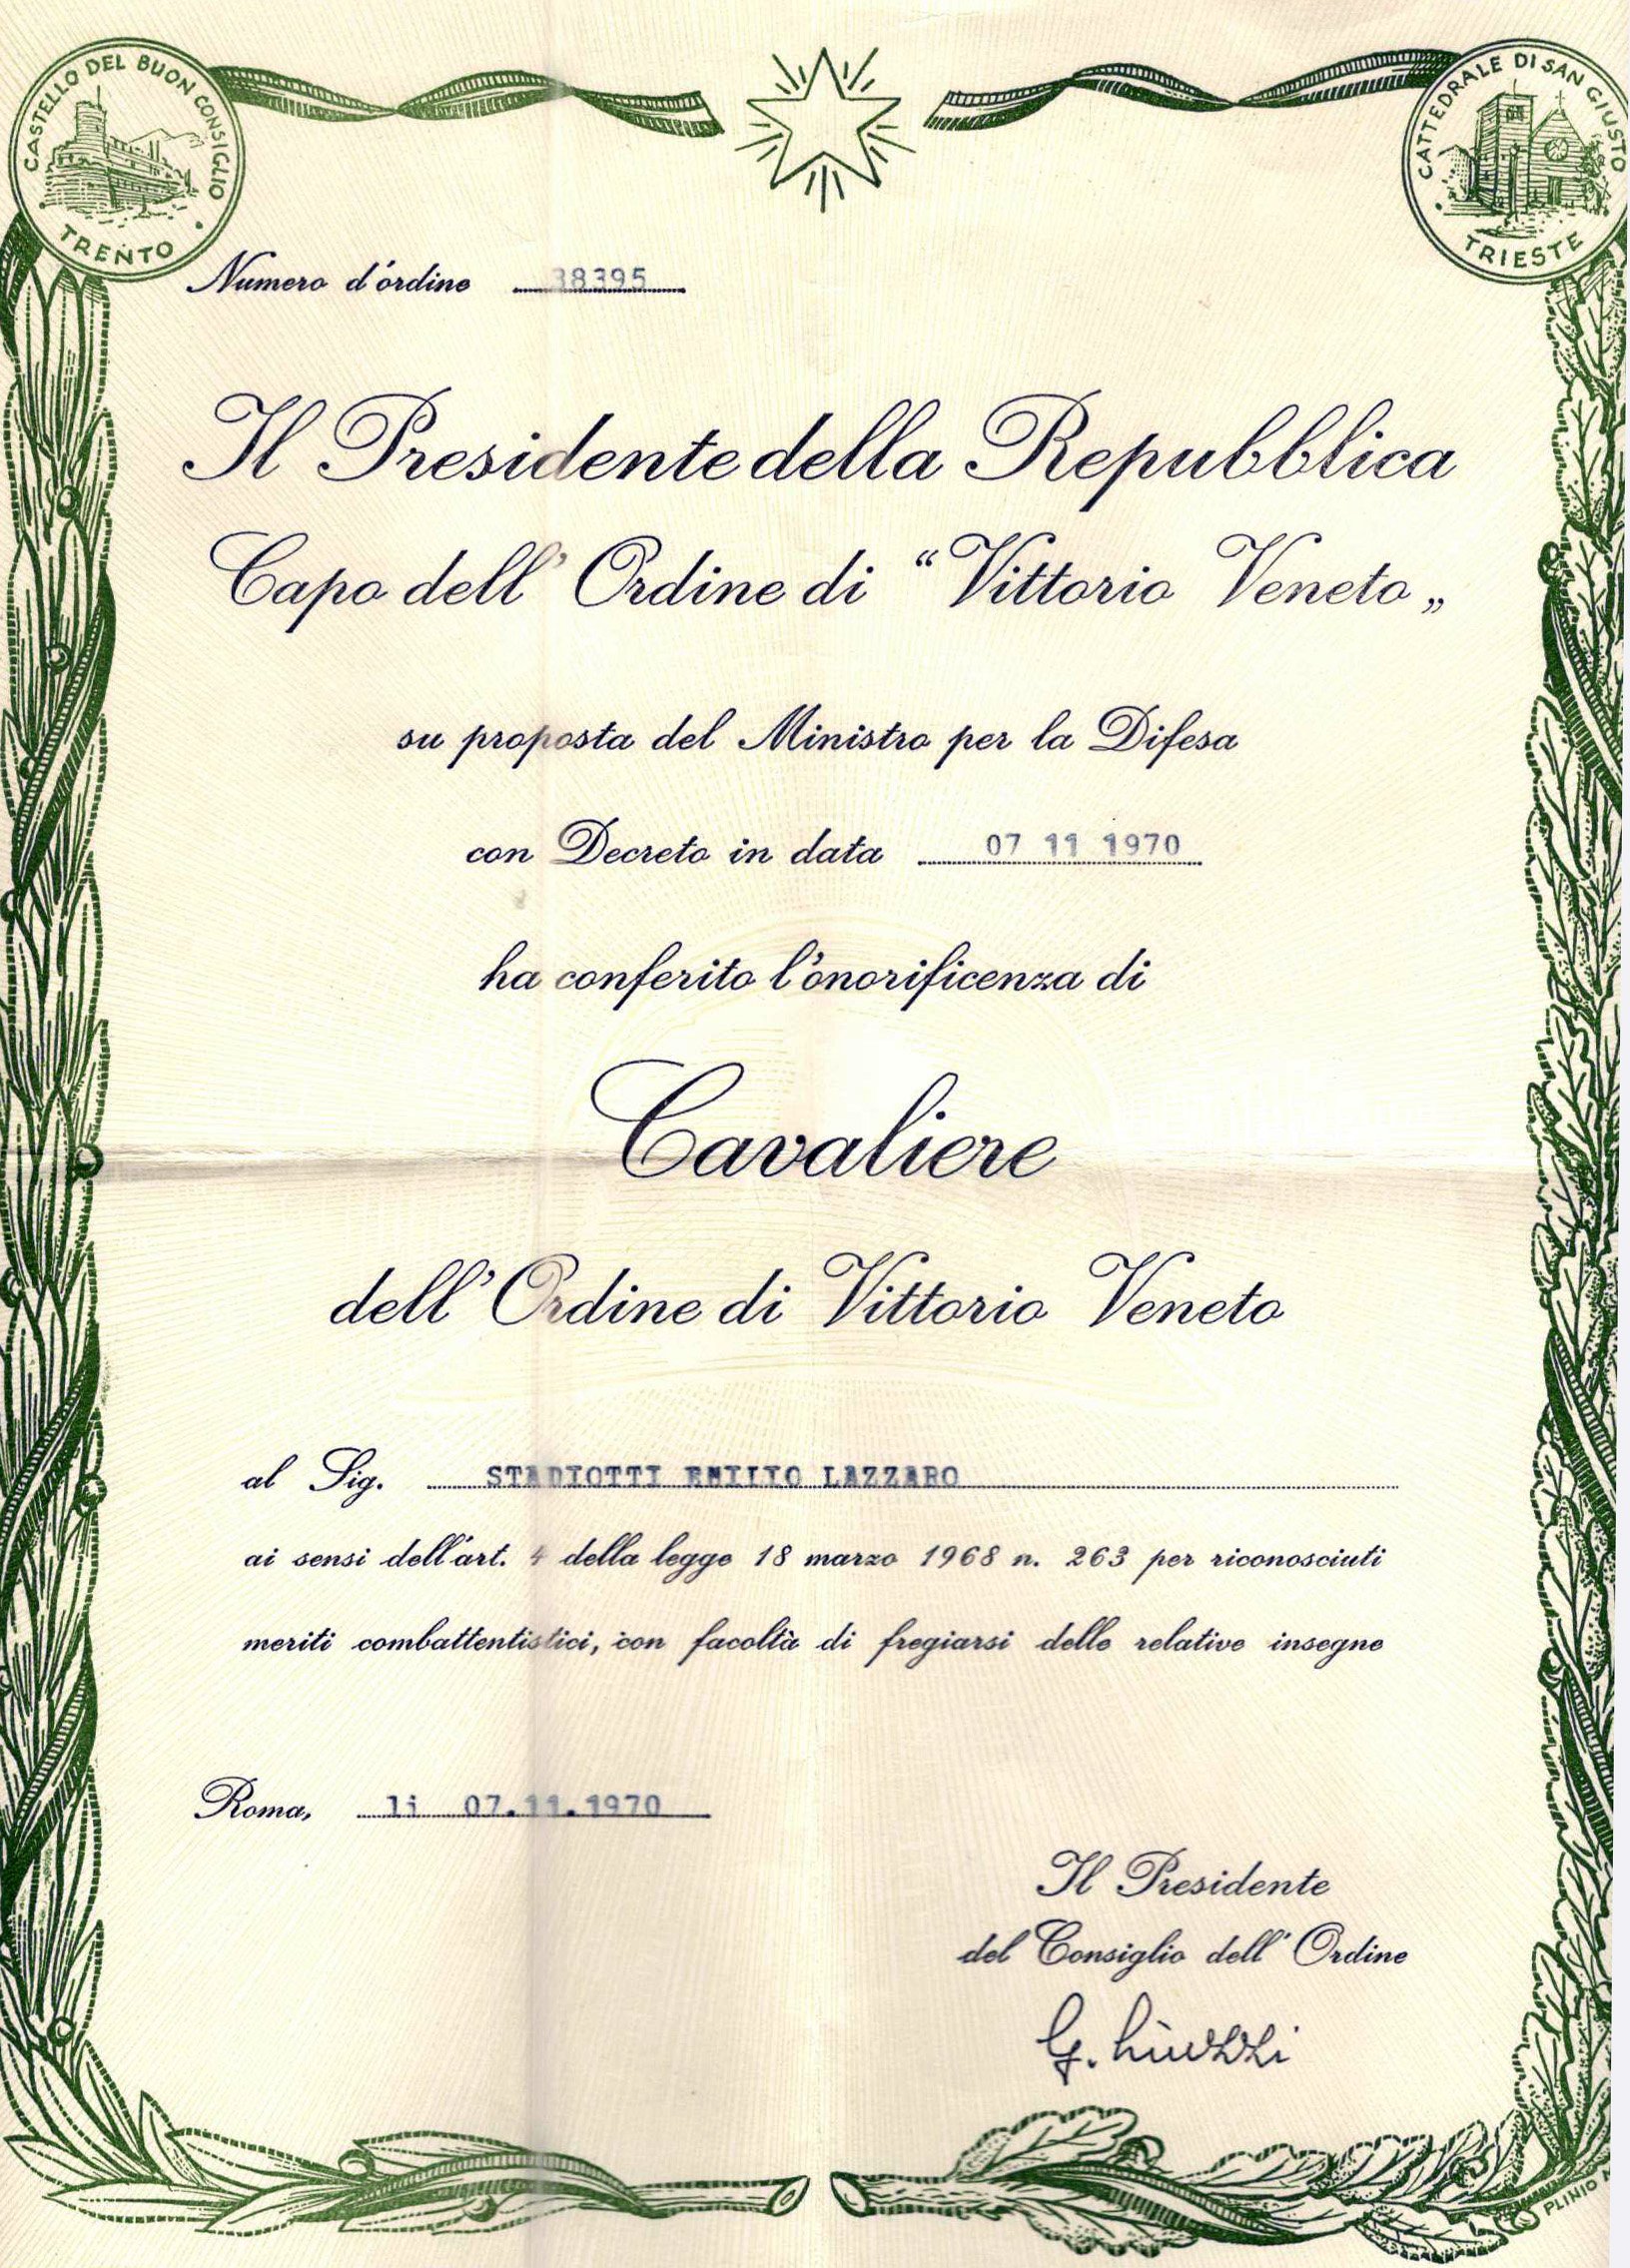 CASTELLO DEL BUON CONSIGLIO
TRENTO
CATTEDRALE DI SAN GIUSTO
TRIESTE
Numero d'ordine 38395
Il Presidente della Repubblica
Capo dell' Ordine di “Vittorio Veneto„
su proposta del Ministro per la Difesa
con Decreto in data 07 11 1970
ha conferito l'onorificenza di
Cavaliere
dell'Ordine di Vittorio Veneto
al Sig. STADIOTTI EMILIO LAZZARO
ai sensi dell'art. 4 della legge 18 marzo 1968 n. 263 per riconosciuti
meriti combattentistici, con facoltà di fregiarsi delle relative insegne
Roma, li 07.11.1970
Il Presidente
del Consiglio dell' Ordine
G. Liuzzi
PLINIO